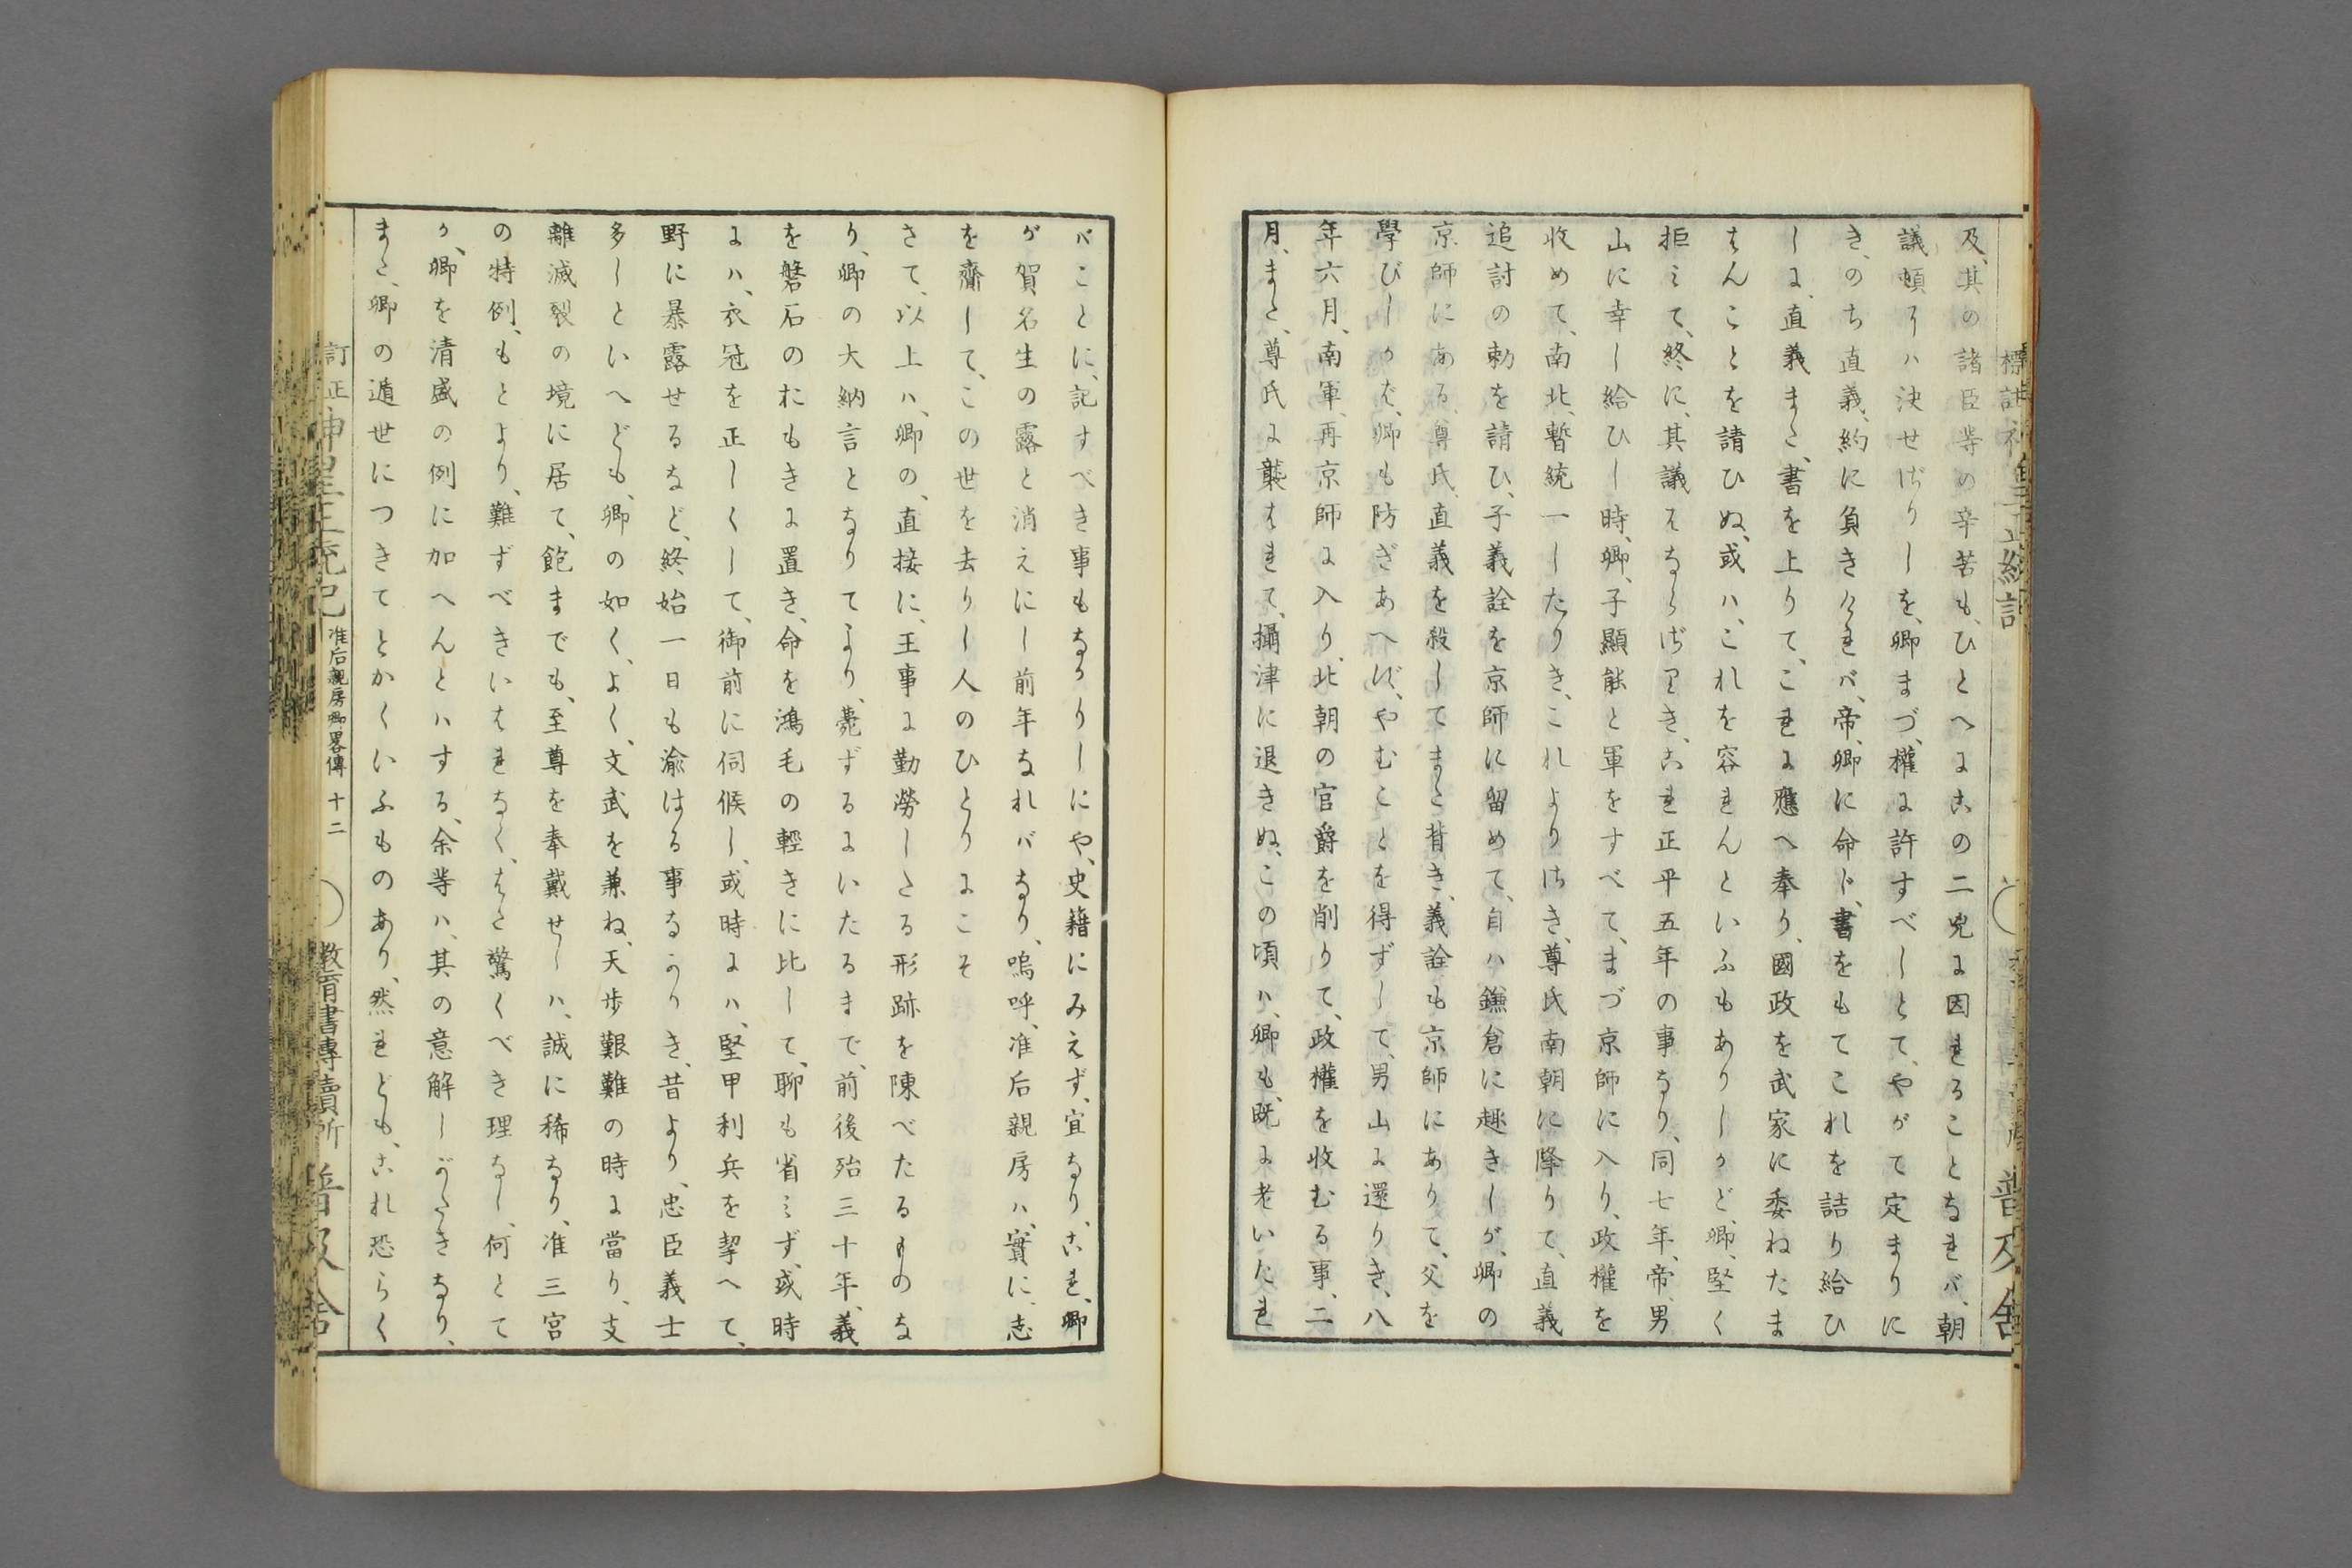 及、其の諸臣等の辛苦も、ひとへに此の二兇に因れることなれバ、朝
議頓にハ決せざりしを、卿まづ、權に許すべしとて、やがて定まりに
き、のち直義、約に負きけれバ、帝、卿に命ド、書をもてこれを詰り給ひ
しに、直義また、書を上りて、これに應へ奉り、國政を武家に委ねたま
はんことを請ひぬ、或ハ、これを容れんといふもありしかど、卿、堅く
拒みて、終に、其議をならざりき、これ正平五年の事なり、同七年、帝、男
山に幸し給ひし時、卿、子顯能と軍をすべて、まづ京師に入り、政權を
收めて、南北、暫統一したりき、これよりさき、尊氏南朝に降りて、直義
追討の勅を請ひ、子義詮を京師に留めて、自ハ鎌倉に趣きしが、卿の
京師にある、尊氏、直義を殺してまた背き、義詮も京師にありて、父を
學びしかば、卿も防ぎあへず、やむことを得ずして、男山に還りき、八
年六月、南軍、再京師に入り、北朝の官爵を削りて、政權を收むる事、二
月、また、尊氏に襲はれて、攝津に退きぬ、この頃ハ、卿も、既に老いたれ
バことに、記すべき事もなかりしにや、史籍にみえず、宜なり、これ、卿
が賀名生の露と消えにし前年なれバなり、嗚呼、准后親房ハ、實に、志
を齎して、この世を去りし人のひとりにこそ
さて、以上ハ、卿の、直接に、王事に勤勞したる形跡を陳べたるものな
り、卿の大納言となりてより、薨ずるにいたるまで、前後殆三十年、義
を磐石のおもきに置き、命を鴻毛の輕きに比して、聊も省みず、或時
にハ、衣冠を正しくして、御前に伺候し、或時にハ、堅甲利兵を挈へて、
野に暴露せるなど、終始一日も渝はる事なかりき、昔より、忠臣義士
多しといへども、卿の如く、よく、文武を兼ね、天歩艱難の時に當り、支
離滅裂の境に居て、飽までも、至尊を奉戴せしハ、誠に稀なり、准三宮
の特例、もとより、難ずべきいはれなく、はた驚くべき理なし、何とて
か、卿を清盛の例に加へんとハする、余等ハ、其の意解しがたきなり、
また、卿の遁世につきてとかくいふものあり、然れども、これ恐らく
訂正神皇正統記 准后親房卿畧傳 十二 ◯教育書專賣所 普及舍